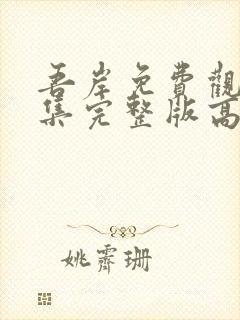 吾岸免費觀
集完整版高
姚霽珊